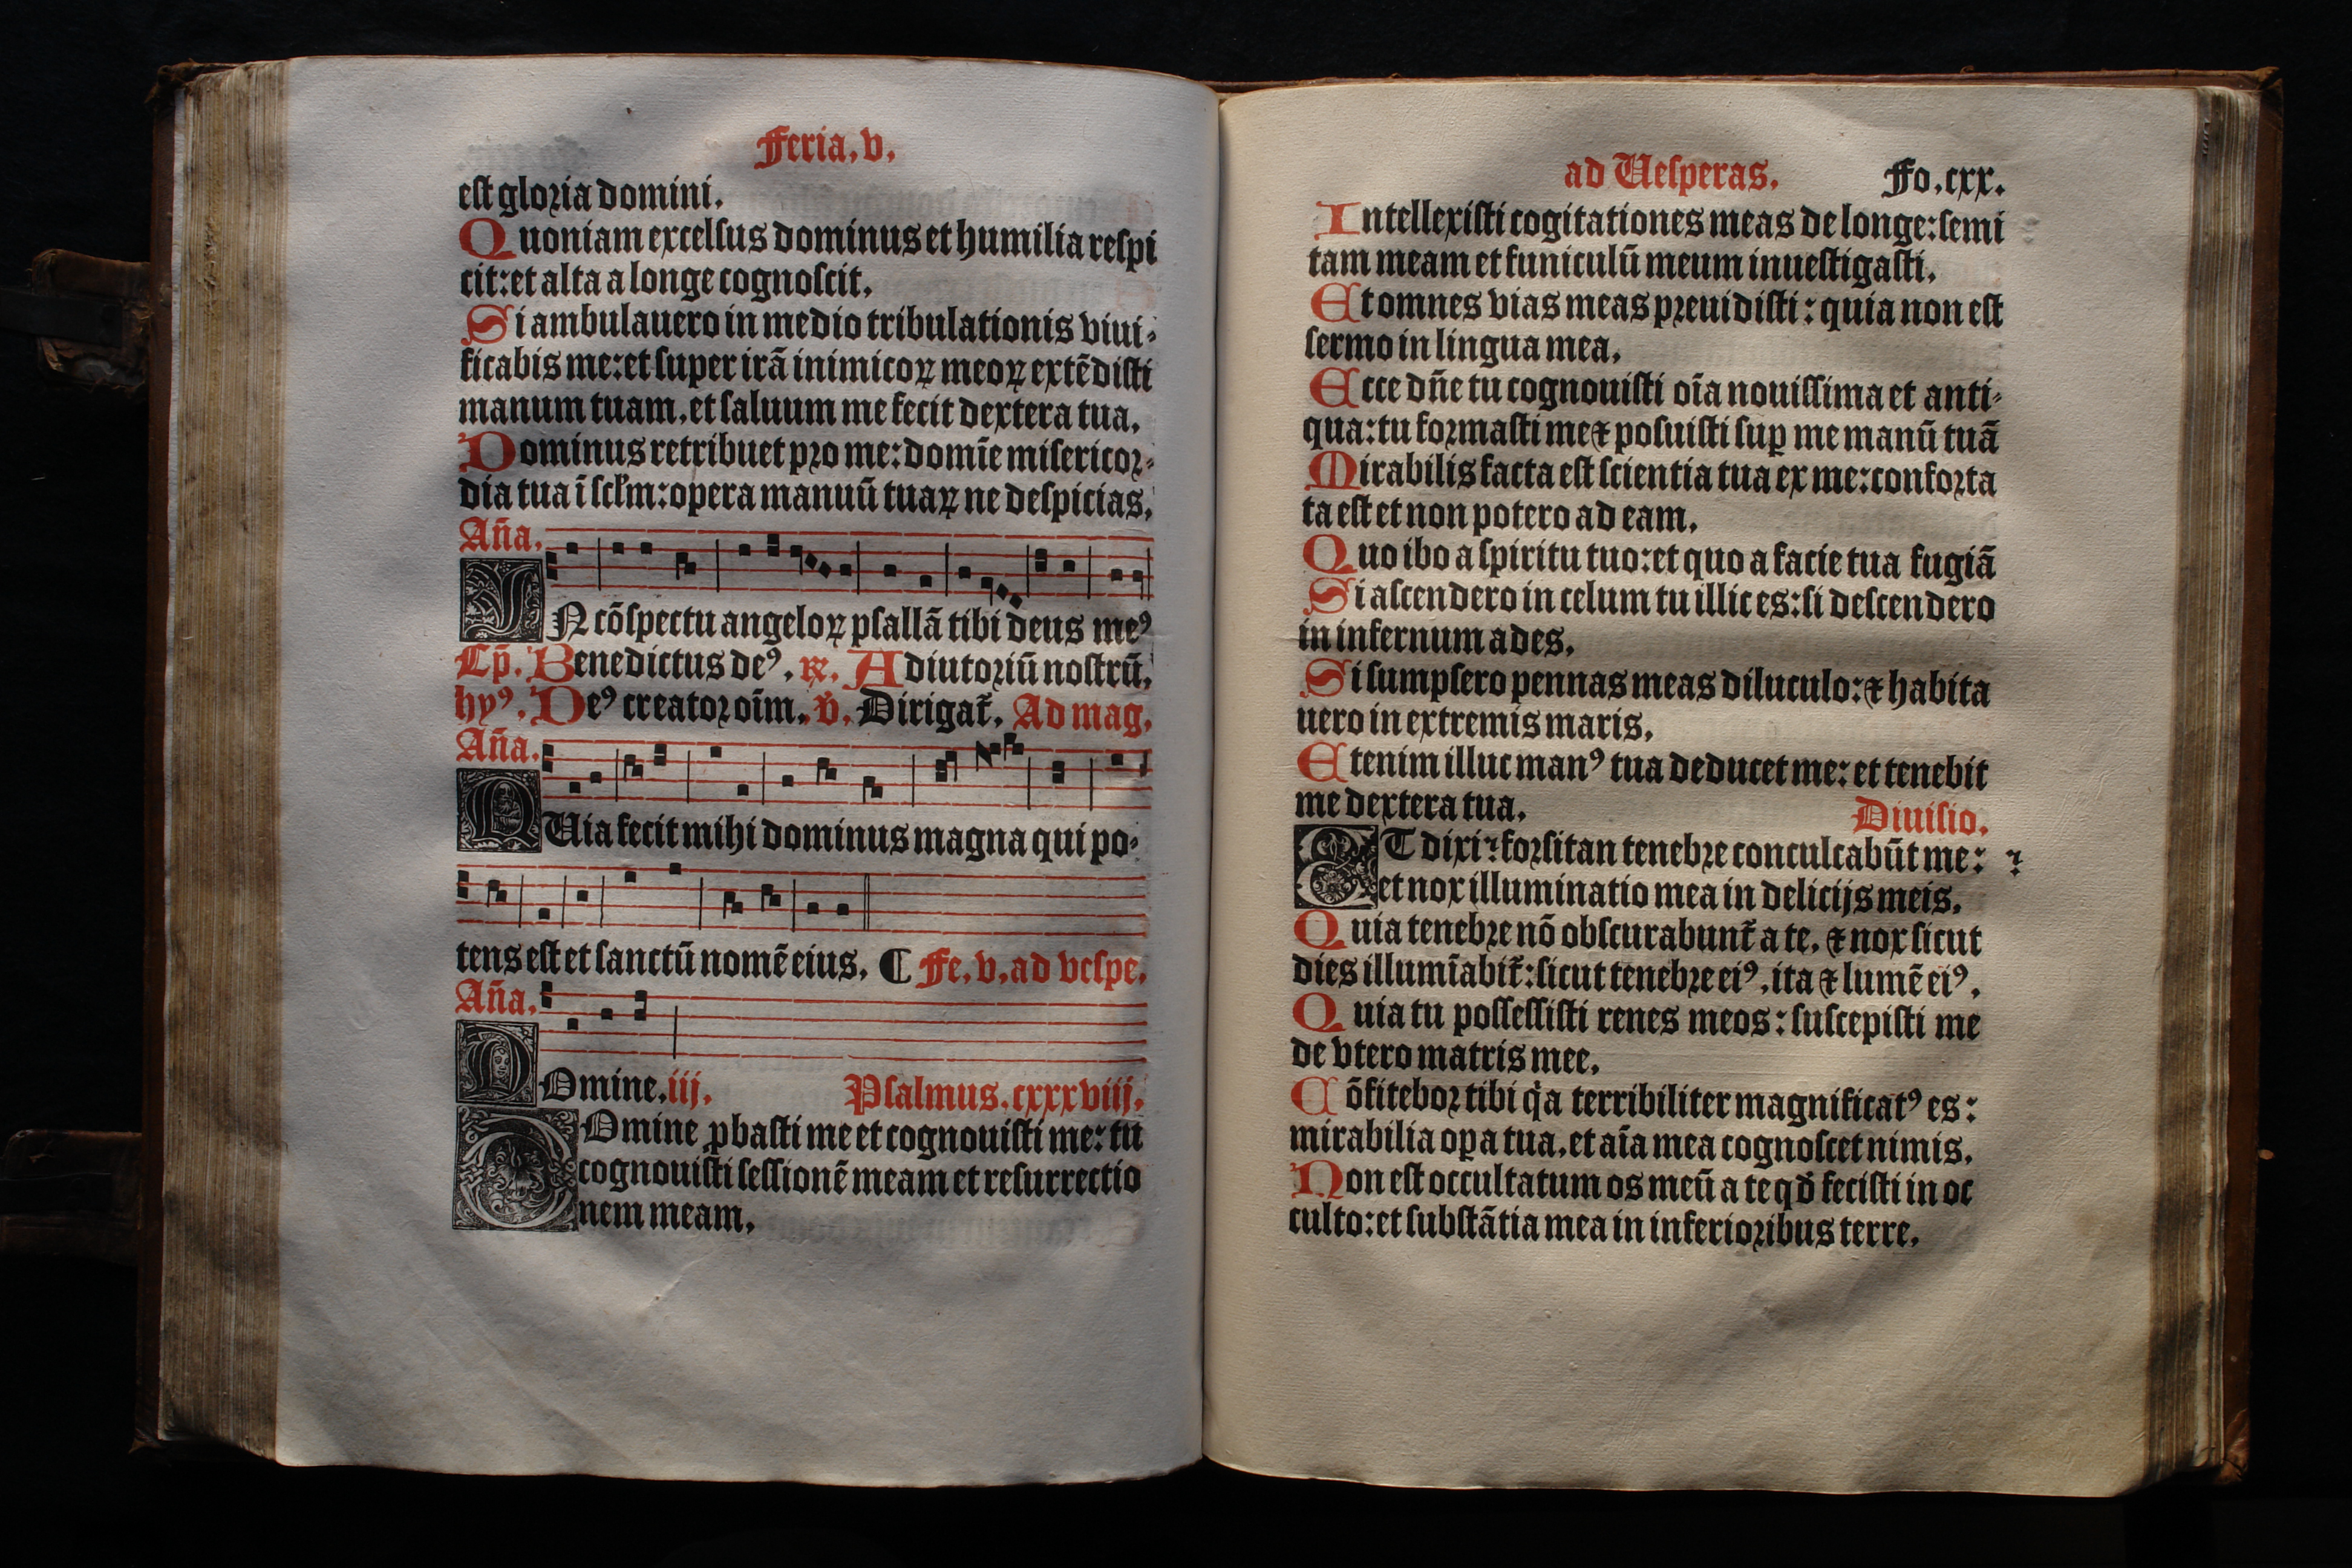 Feria. v.
est gloria domini.
Quoniam excelsus dominus et humilia respi
cit: et alta a longe cognoscit.
Si ambulauero in medio tribulationis viui⸗
ficabis me: et super irā inimicoꝝ meoꝝ extēdisti
manum tuam. et saluum me fecit dextera tua.
Dominus retribuet pro me: domīe misericor⸗
dia tua ī scl̄m: opera manuū tuaꝝ ne despicias.
Añа.
IN cōspectu angeloꝝ psallā tibi deus meꝰ
Cp̄. Benedictus deꝰ. ꝶ. Adiutoriū nostrū.
hyꝰ. Deꝰ creator oīm. v̄. Dirigat᷑. Ad mag.
Aña.
QUia fecit mihi dominus magna qui po⸗
tens est et sanctū nomē eius. ¶ Fe. v. ad vespe.
Aña.
DOmine. iij. Psalmus. cxxxviij.
DOmine ꝓbasti me et cognouisti me: tu
cognouisti sessionē meam et resurrectio
nem meam.
ad Uesperas. Fo. cxx.
Intellexisti cogitationes meas de longe: semi
tam meam et funiculū meum inuestigasti.
Et omnes vias meas preuidisti: quia non est
sermo in lingua mea.
Ecce dn̄e tu cognouisti oīa nouissima et anti⸗
qua: tu formasti me ⁊ posuisti suꝑ me manū tuā
Mirabilis facta est scientia tua ex me: conforta
ta est et non potero ad eam.
Quo ibo a spiritu tuo: et quo a facie tua fugiā
Si ascendero in celum tu illic es: si descendero
in infernum ades.
Si sumpsero pennas meas diluculo: ⁊ habita
uero in extremis maris.
Etenim illuc manꝰ tua deducet me: et tenebit
me dextera tua. Diuisio.
ET dixi: forsitan tenebre conculcabūt me:
et nox illuminatio mea in delicijs meis.
Quia tenebre nō obscurabunt᷑ a te. ⁊ nox sicut
dies illumīabit᷑: sicut tenebre eiꝰ. ita ⁊ lumē eiꝰ.
Quia tu possessisti renes meos: suscepisti me
de vtero matris mee.
Cōfitebor tibi qͥa terribiliter magnificatꝰ es:
mirabilia oꝑa tua. et aīa mea cognoscet nimis.
Non est occultatum os meū a te qđ fecisti in oc
culto: et substātia mea in inferioribus terre.